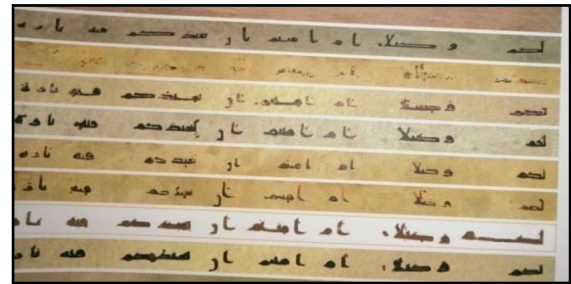 لكم وكيلا ام امنتم ان يعيدكم فيه تاره
لكم وكيلا ام امنتم ان يعيدكم فيه تارة
لكم وكيلا ام امنتم ان يعيدكم فيه تاره
لكم وكيلا ام امنتم ان يعيدكم فيه تاره
لكم وكيلا ام امنتم ان يعيدكم فيه
لكم وكيلا ام امنتم ان يعيدكم فيه
لكم وكيلا ام امنتم ان يعيدكم فيه